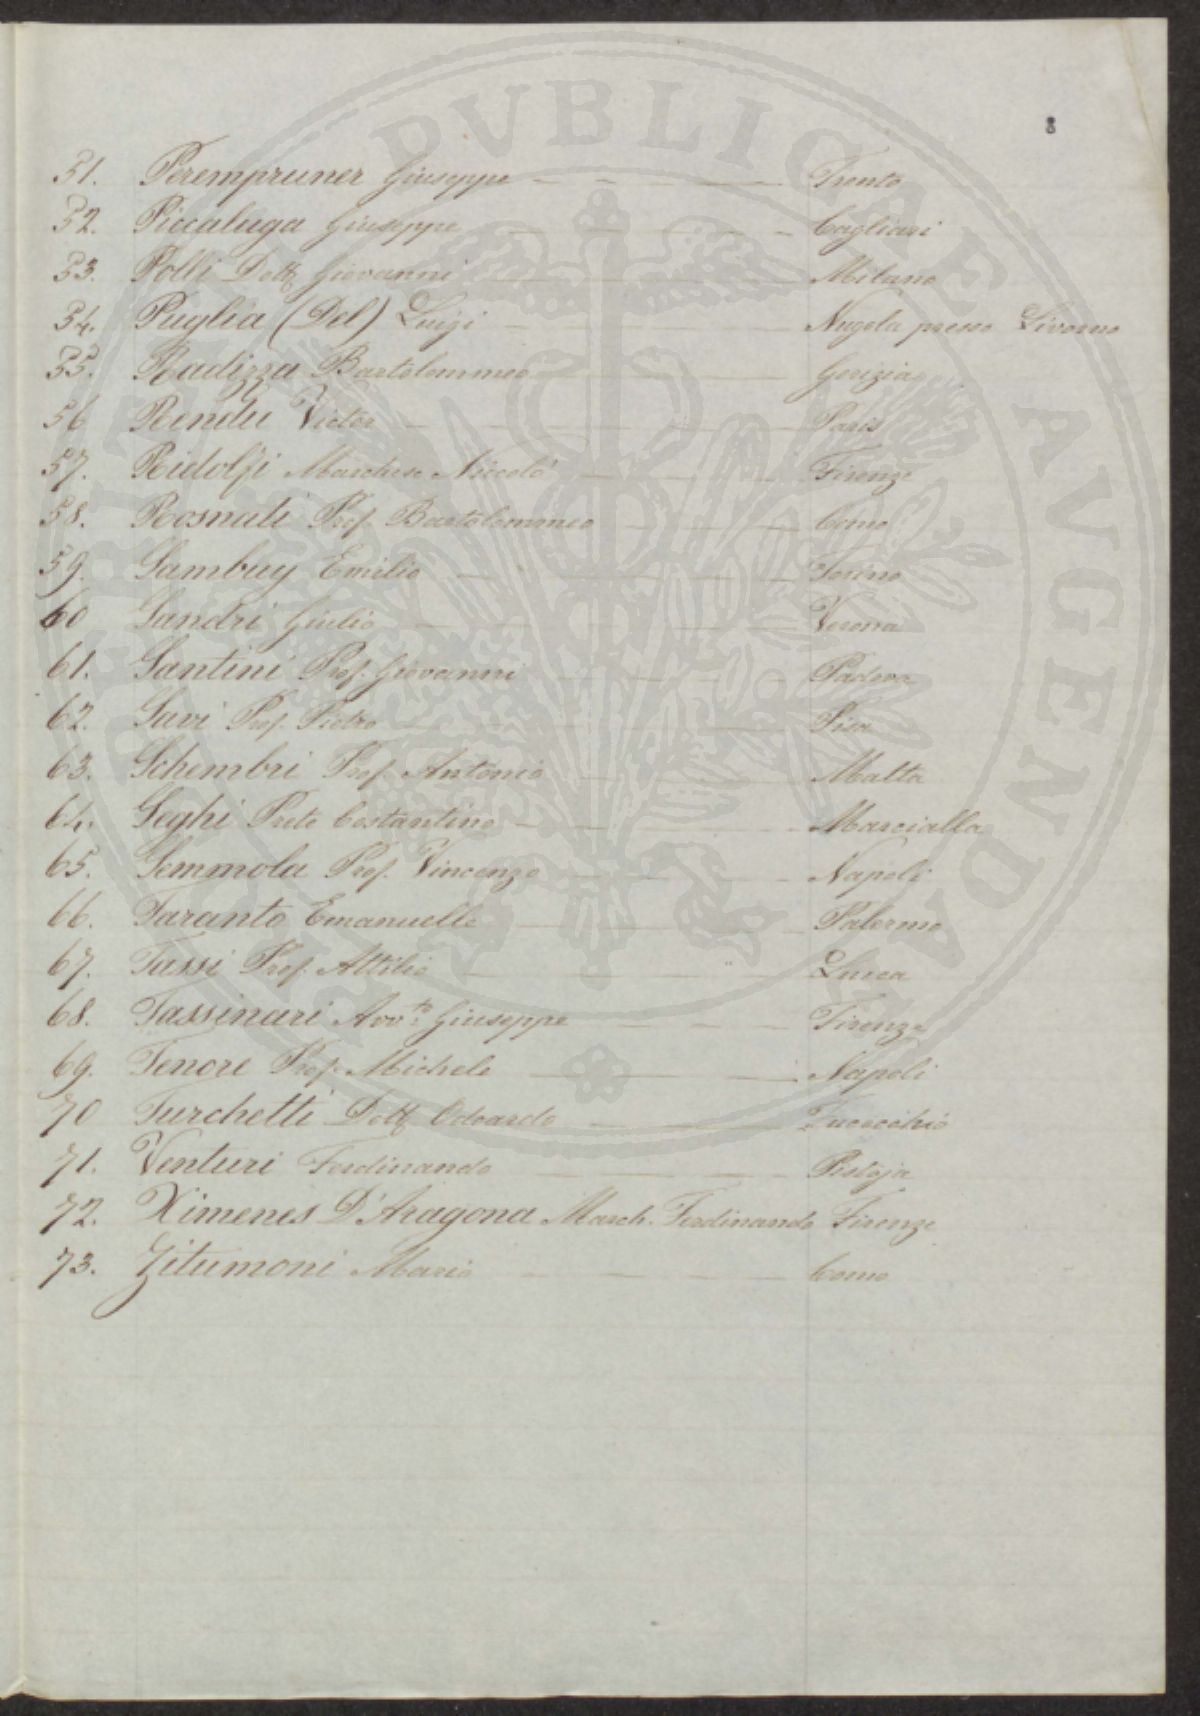 8
51. Perempruner Giuseppe Trento
52. Piccaluga Giuseppe Cagliari
53. Polli Dott. Giovanni Milano
54. Puglia (Del) Luigi Nugola presso Livorno
55. Radizza Bartolommeo Gorizia
56 Rendu Victor Paris
57. Ridolfi Marchese Niccolò Firenze
58. Rosnati Prof. Bartolommeo Como
59. Sambuy Emilio Torino
60 Sandri Giulio Verona
61. Santini Prof. Giovanni Padova
62. Savi Prof. Pietro Pisa
63. Schembri Prof. Antonio Malta
64. Seghi Prete Costantino Marcialla
65. Semmola Prof. Vincenzo Napoli
66. Taranto Emanuelle Palermo
67. Tassi Prof. Attilio Lucca
68. Tassinari Avv.to Giuseppe Firenze
69. Tenore Prof. Michele Napoli
70 Turchetti Dott. Odoardo Fucecchio
71. Venturi Ferdinando Pistoja
72. Ximenes D'Aragona March. Ferdinando Firenze
73. Zitumoni Mario Como
PVBLICAE AVGENDA